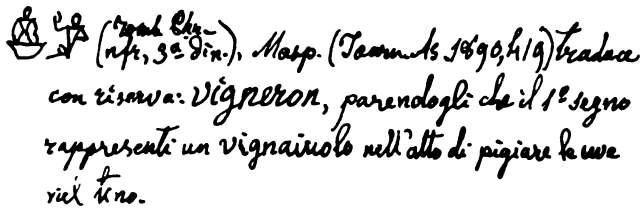 (tomb. Chu-
nfr, 3ª din.), Masp. (Journ. As 1890, 419) traduce
con riserva: vigneron, parendogli che il 1º segno
rappresenti un vignaiuolo nell'atto di pigiare le uve
nel tino.